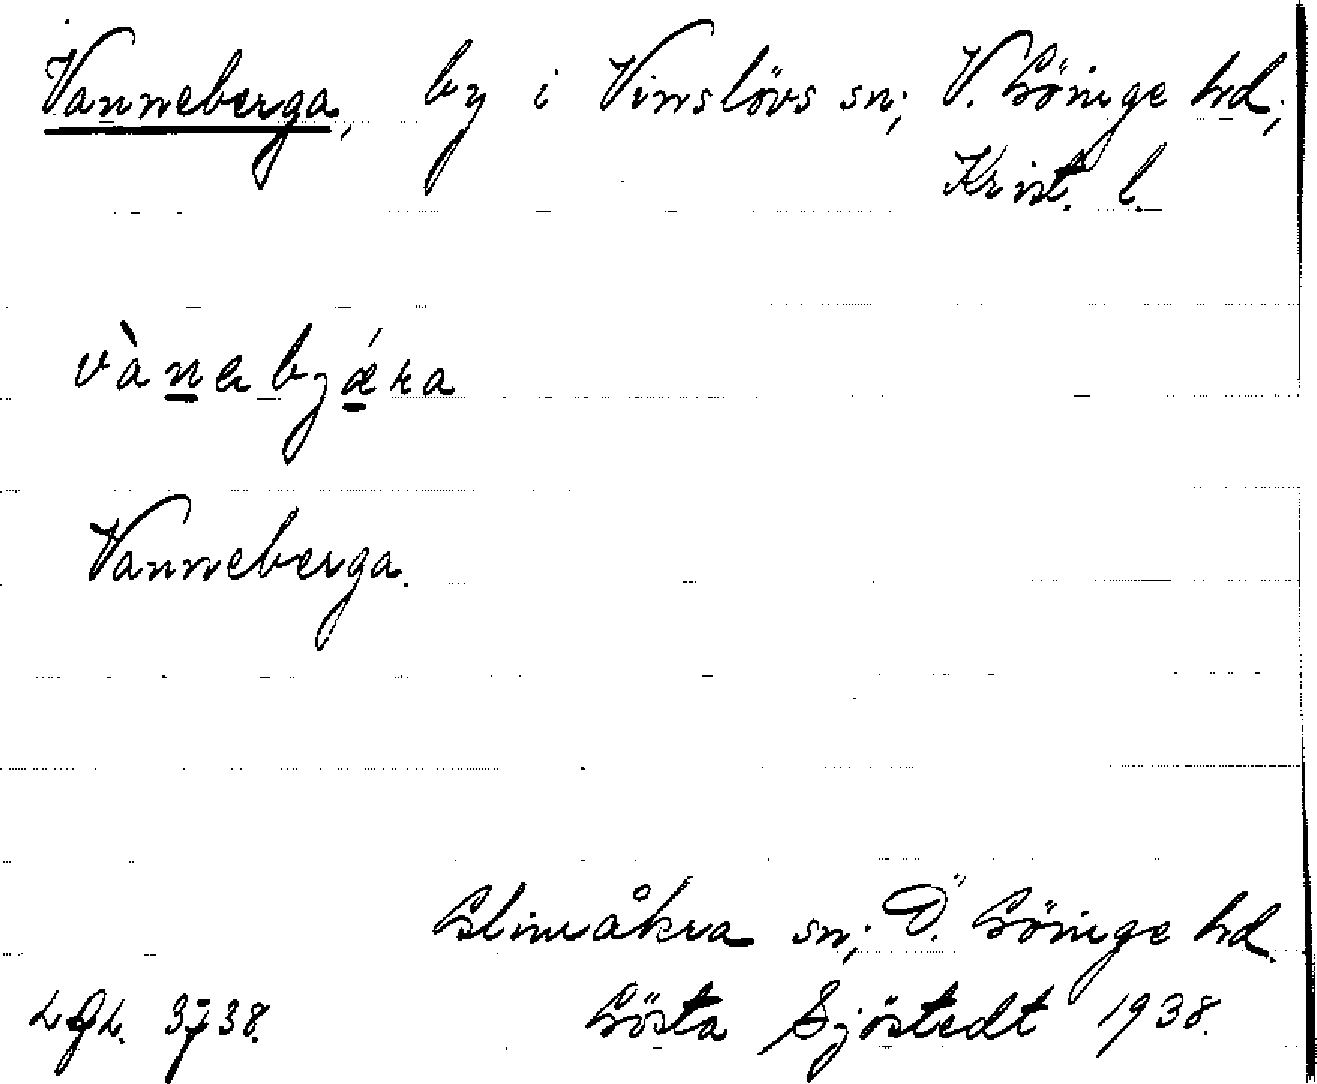 Vanneberga, by i Vinslövs sn; V. Göinge hd;
Krist. l.
vànebjǽra
Vanneberga.
Glimåkra sn; Ö. Göinge hd.
Gösta Sjöstedt 1938.